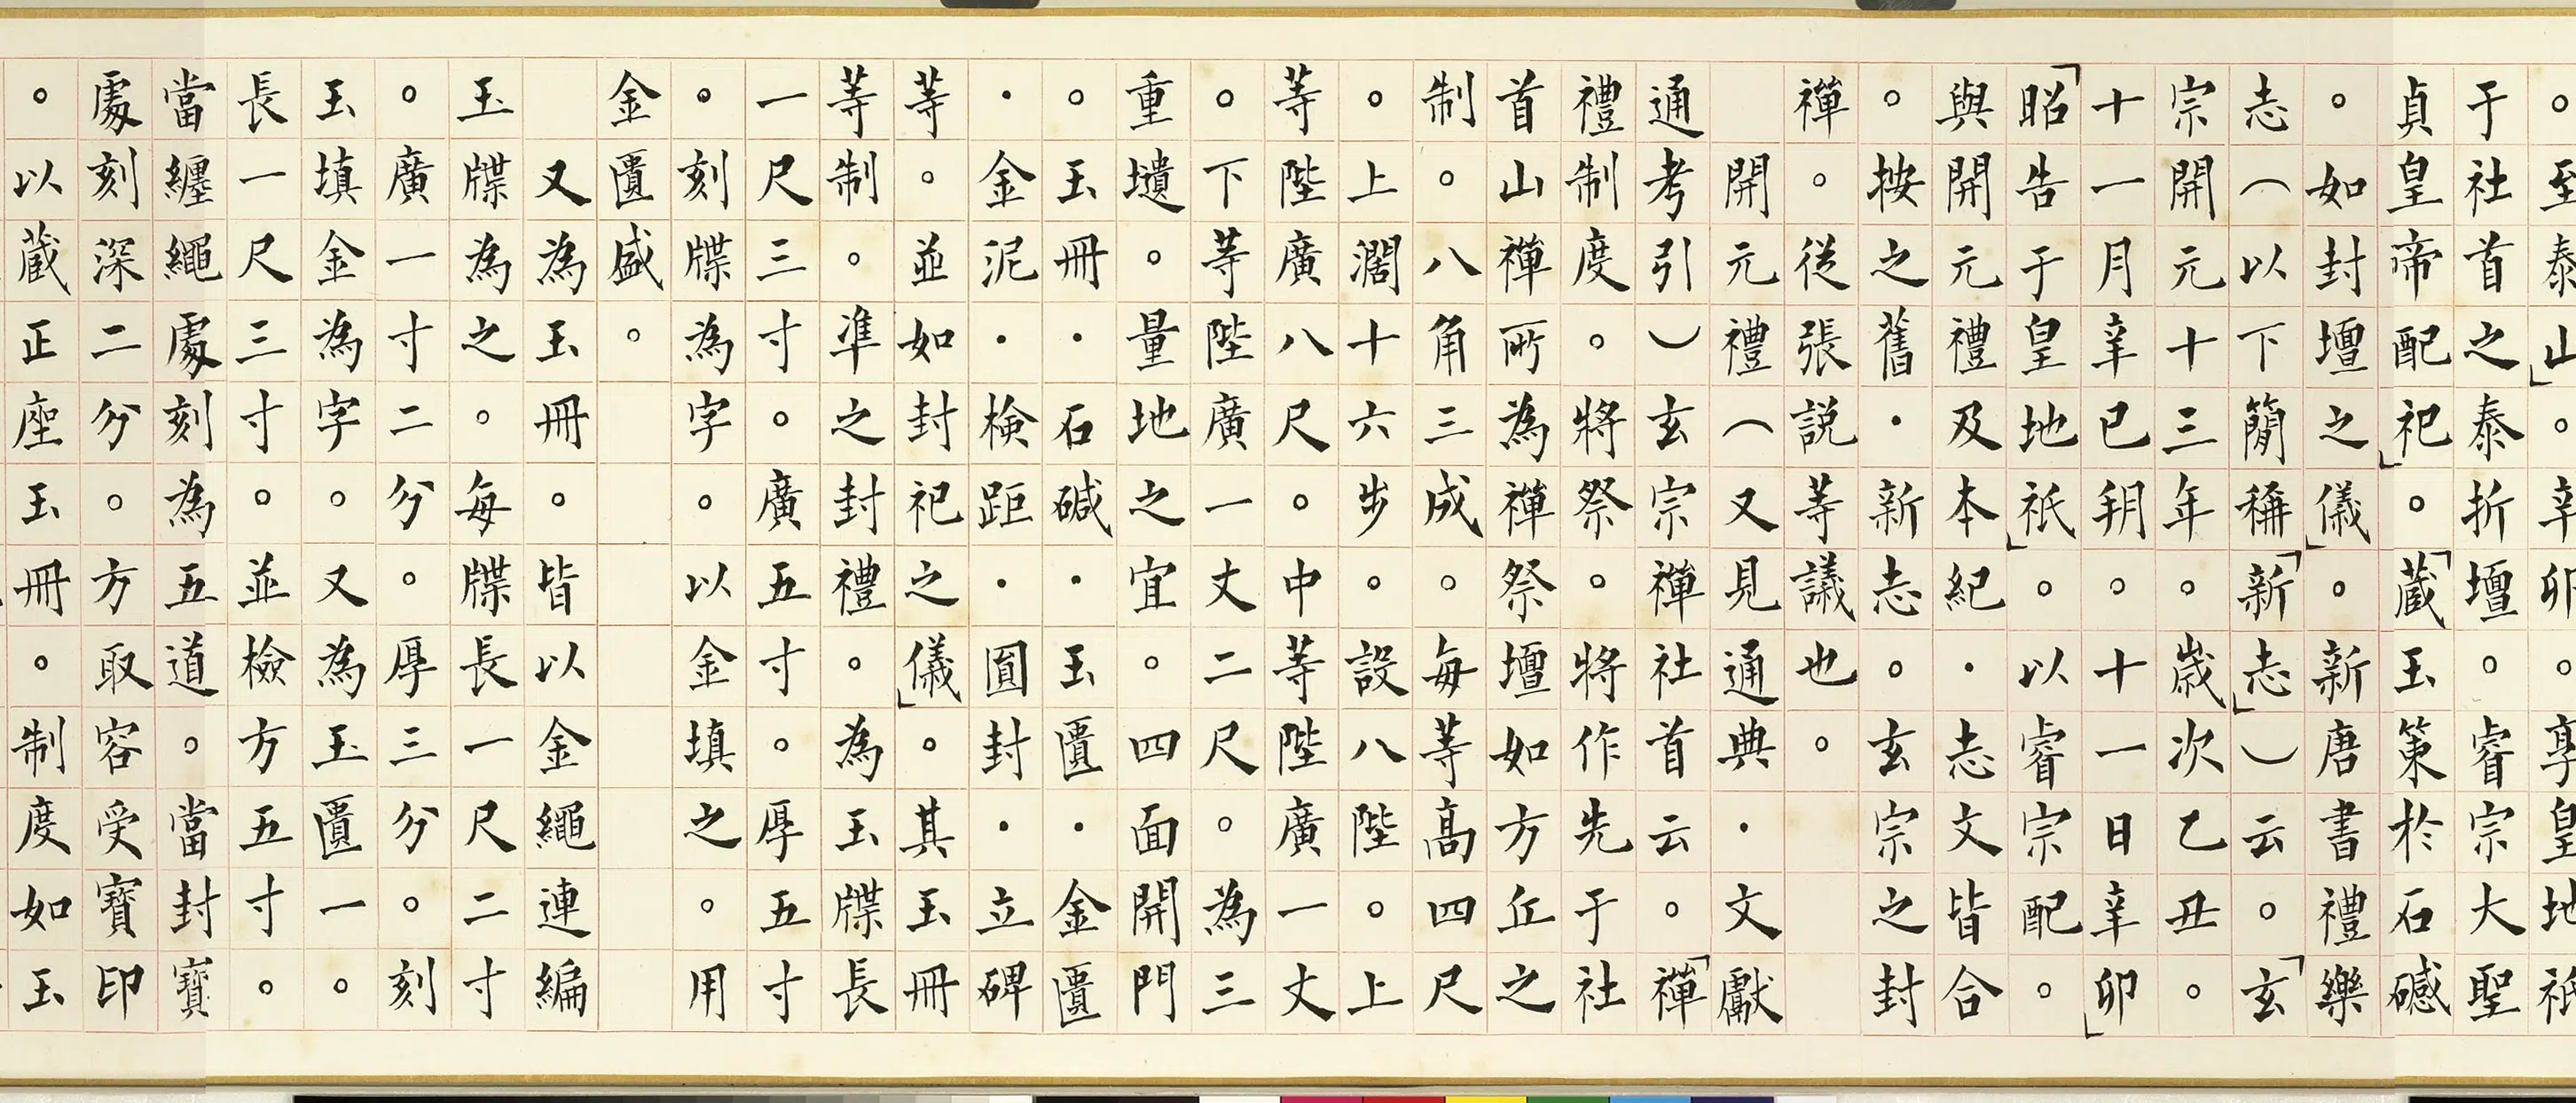 。至泰山」。辛卯。享皇地祇
于社首之泰折壇。睿宗大聖
貞皇帝配祀」。「蔵玉策於石䃭
。如封壇之儀」。新唐書禮樂
志(以下簡稱「新志」)云。「玄
宗開元十三年。歳次乙丑。
十一月辛巳朔。十一日辛卯」
「昭告于皇地祇」。以睿宗配。
與開元禮及本紀・志文皆合
。按之舊・新志。玄宗之封
禪。從張説等議也。
開元禮(又見通典・文獻
通考引)玄宗禪社首云。「禪
禮制度。將祭。將作先于社
首山禪所為禪祭壇如方丘之
制。八角三成。每等高四尺
。上濶十六步。設八陛。上
等陛廣八尺。中等陛廣一丈
。下等陛廣一丈二尺。為三
重壝。量地之宜。四面開門
。玉冊・石碱・玉匱・金匱
・金泥・検距・圓封・立碑
等。並如封祀之儀」。其玉冊
等制。準之封禮。為玉牒長
一尺三寸。廣五寸。厚五寸
。刻牒為字。以金填之。用
金匱盛。
又為玉冊。皆以金繩連編
玉牒為之。每牒長一尺二寸
。廣一寸二分。厚三分。刻
玉填金為字。又為玉匱一。
長一尺三寸。並檢方五寸。
當纏繩處刻為五道。當封寶
處刻深二分。方取容受寶印
。以蔵正座玉冊。制度如玉